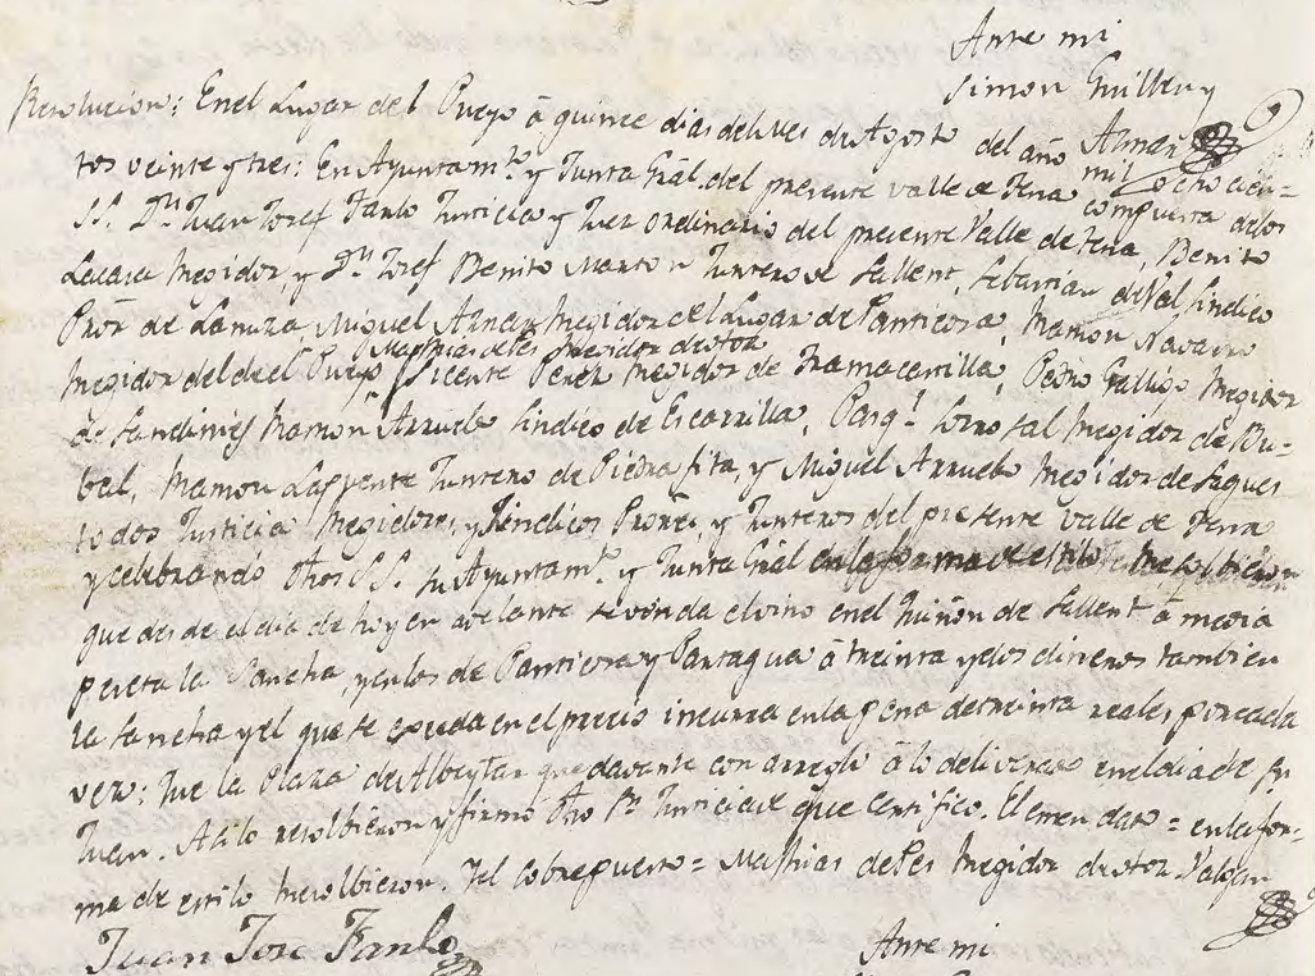 Ante mi
Simon Guillen y
Aznar
Resolucion: En el Lugar del Pueyo á quince dias del Mes de Agosto del año mil ochocien=
tos veinte y tres: En Ayuntam.to y Junta Gral. del presente valle de Tena compuesta delos
SS. D.n Juan Josef Fanlo Justicia y Juez ordinario del presente Valle de Tena, Benito
Lacasa Regidor, y D.n Josef Benito Marton Juntero de Sallent, Sebastian del Val Sindico
Pror de Lanuza, Miguel Aznar Regidor del Lugar de Panticosa, Ramon Navarro
Mathias de Pes Regidor de otoz
Regidor del de el Pueyo Vicente Perez Regidor de Tramacastilla, Pedro Gallego Regidor
de Sandinies Ramon Arruebo Sindico de Escarrilla, Pasq.l Regidor de Bu=
bal, Ramon Lapuente Juntero de Piedrafita, y Miguel Arruebo Regidor de Saques
todos Justicia Regidores, y Sindicos Prores, y Junteros del presente valle de Tena
y celebrando dhos SS. su Ayuntam.to y Junta Gral en la forma de estilo Resolbieron
que desde el dia de hoy en adelante se venda el vino en el Quiñon de Sallent á media
peseta la Cancha, y en los de Panticosa y Partagua á treinta y dos dineros tambien
la Cancha y el que se exceda en el precio incurra en la pena de treinta reales por cada
vez: Que la Plaza de Albeytar que da vante con arreglo á lo deliverado en el dia de Sn
Juan. Asi lo resolbieron y firmó dho Sr. Justicia de que certifico. El enmendado = en la for=
ma de estilo Resolbieron. Y el sobrepuesto = Mathias de Pes Regidor de otoz. Valgan
Juan José Fanlo
Ante mi